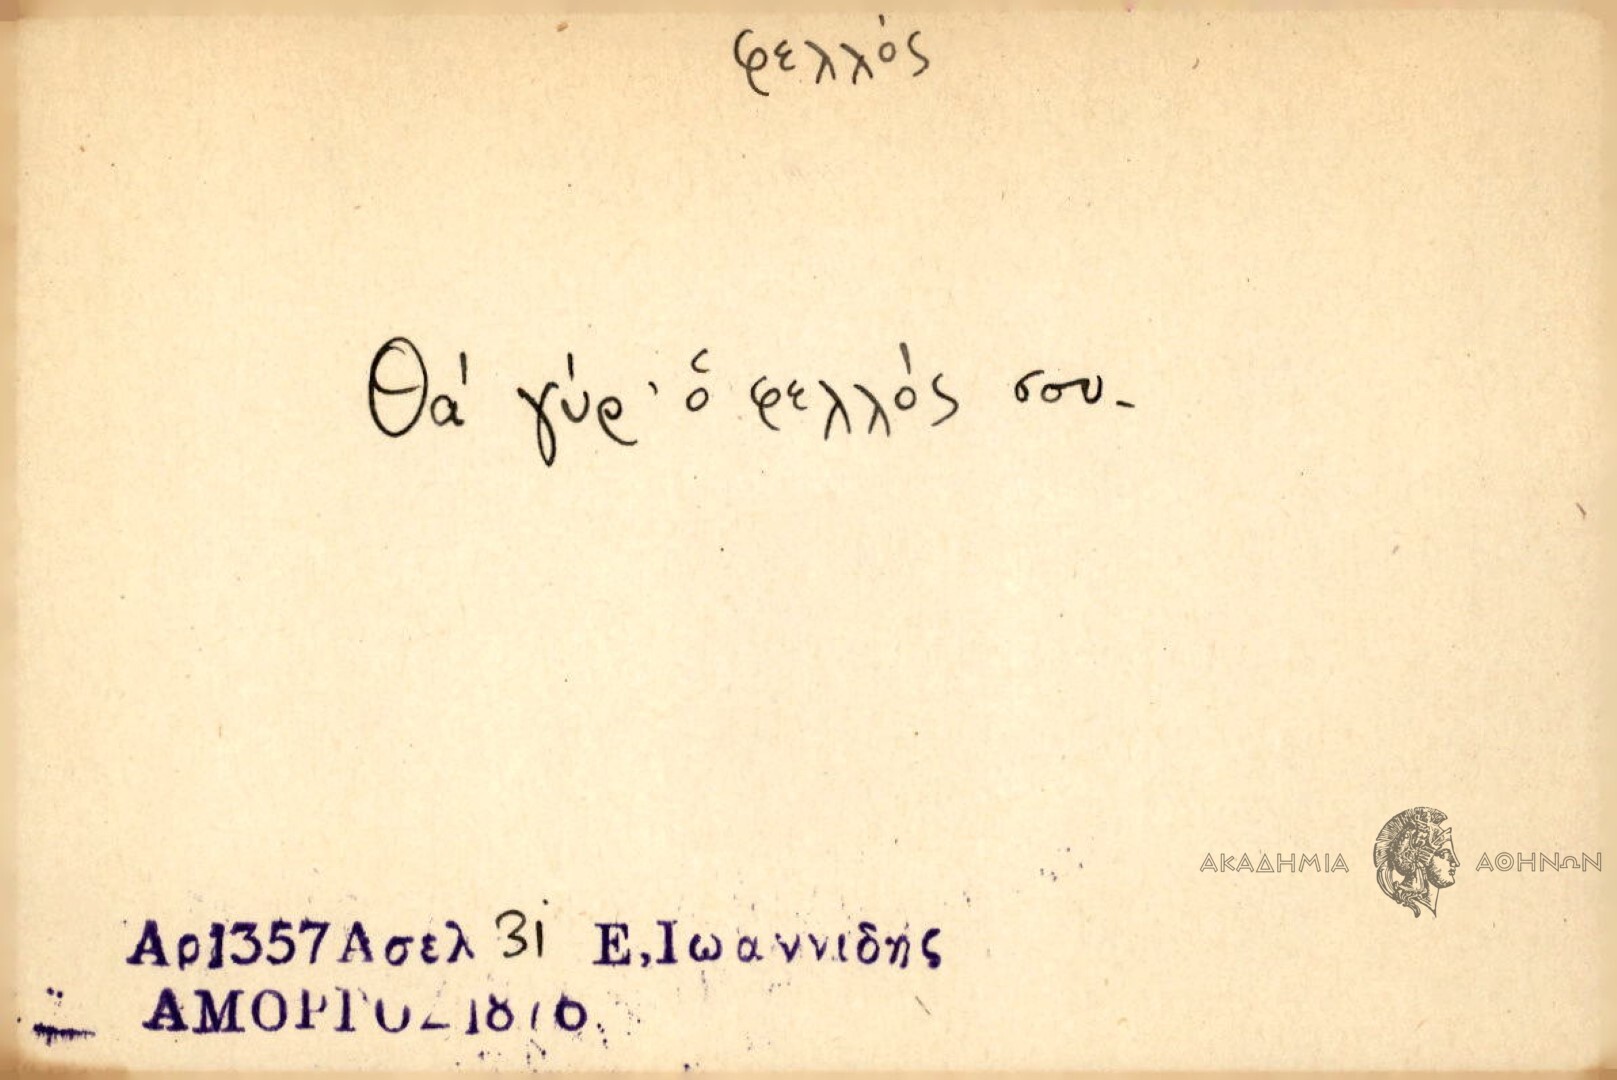 φελλός
Θά γύρ' ὁ φελλός σου.
ΑΚΑΔΗΜΙΑ ΑΘΗΝΩΝ
Αρ1357Ασελ 31 Ε,Ιωαννιδης
ΑΜΟΡΓΟΣ 1876